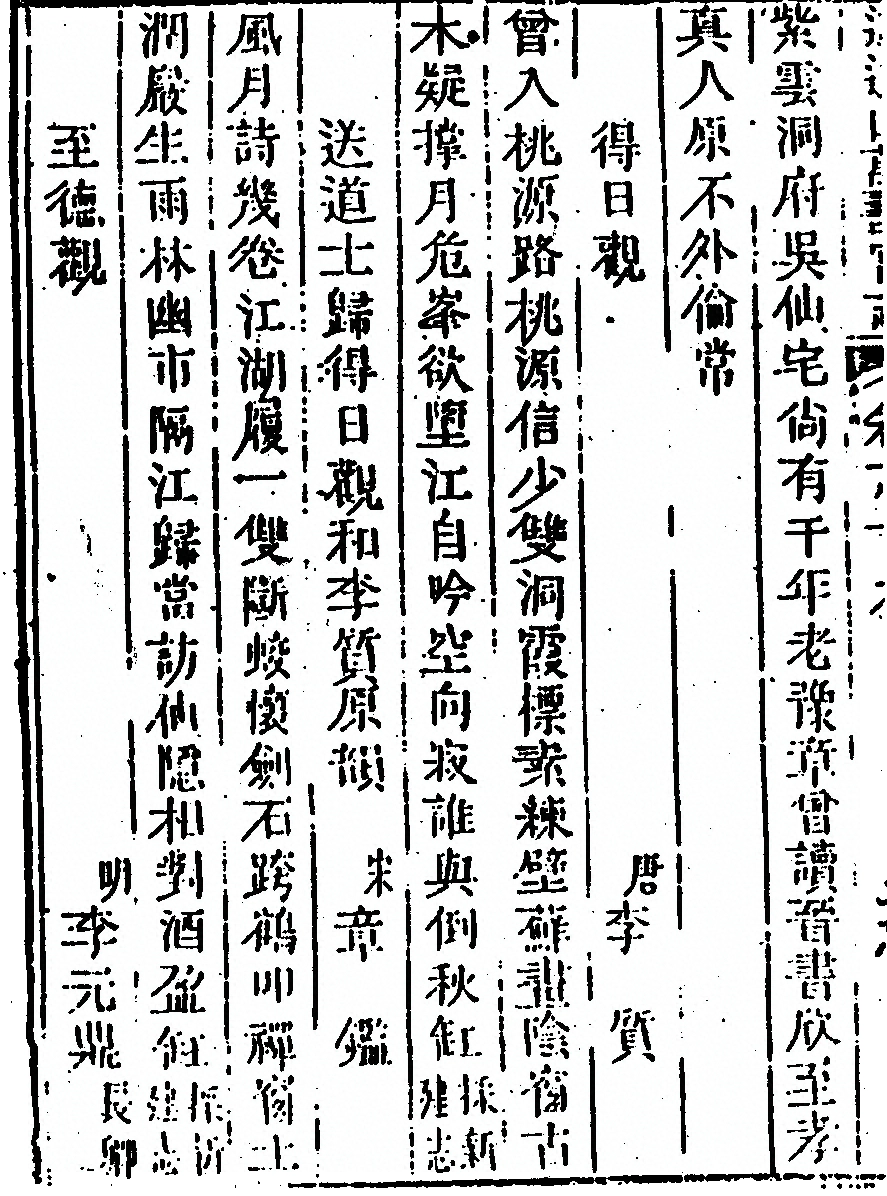 紫雲洞府吳仙宅尙有千年老豫章曾讀晉書欣至孝
真人原不外倫常
得日觀 唐李質
曾入桃源路桃源信少雙洞霞標素練壁蘚畫陰窗古
木疑撑月危峯欲墮江自吟空向寂誰與倒秋缸採新建志
送道士歸得日觀和李質原韻 宋章鑑
風月詩幾卷江湖履一雙斷蛟懷劍石跨鶴叩禪窗土
潤嚴生雨林幽市隔江歸當訪仙隱相對酒盈缸採新建志
至德觀 明李元鼎